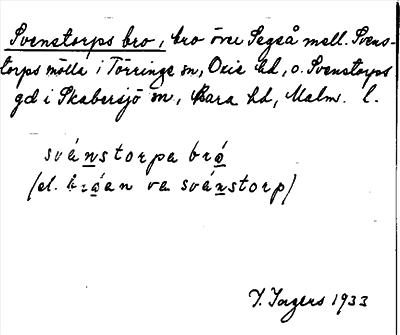 Svenstorps bro, bro över Segeå mell. Svens-
torps mölla i Törringe sn, Oxie hd, o. Svenstorps
gd i Skabersjö sn, Bara hd, Malm. l.
svánstorpa bró
(el. bróan ve svánstorp)
Y. Ingers 1933